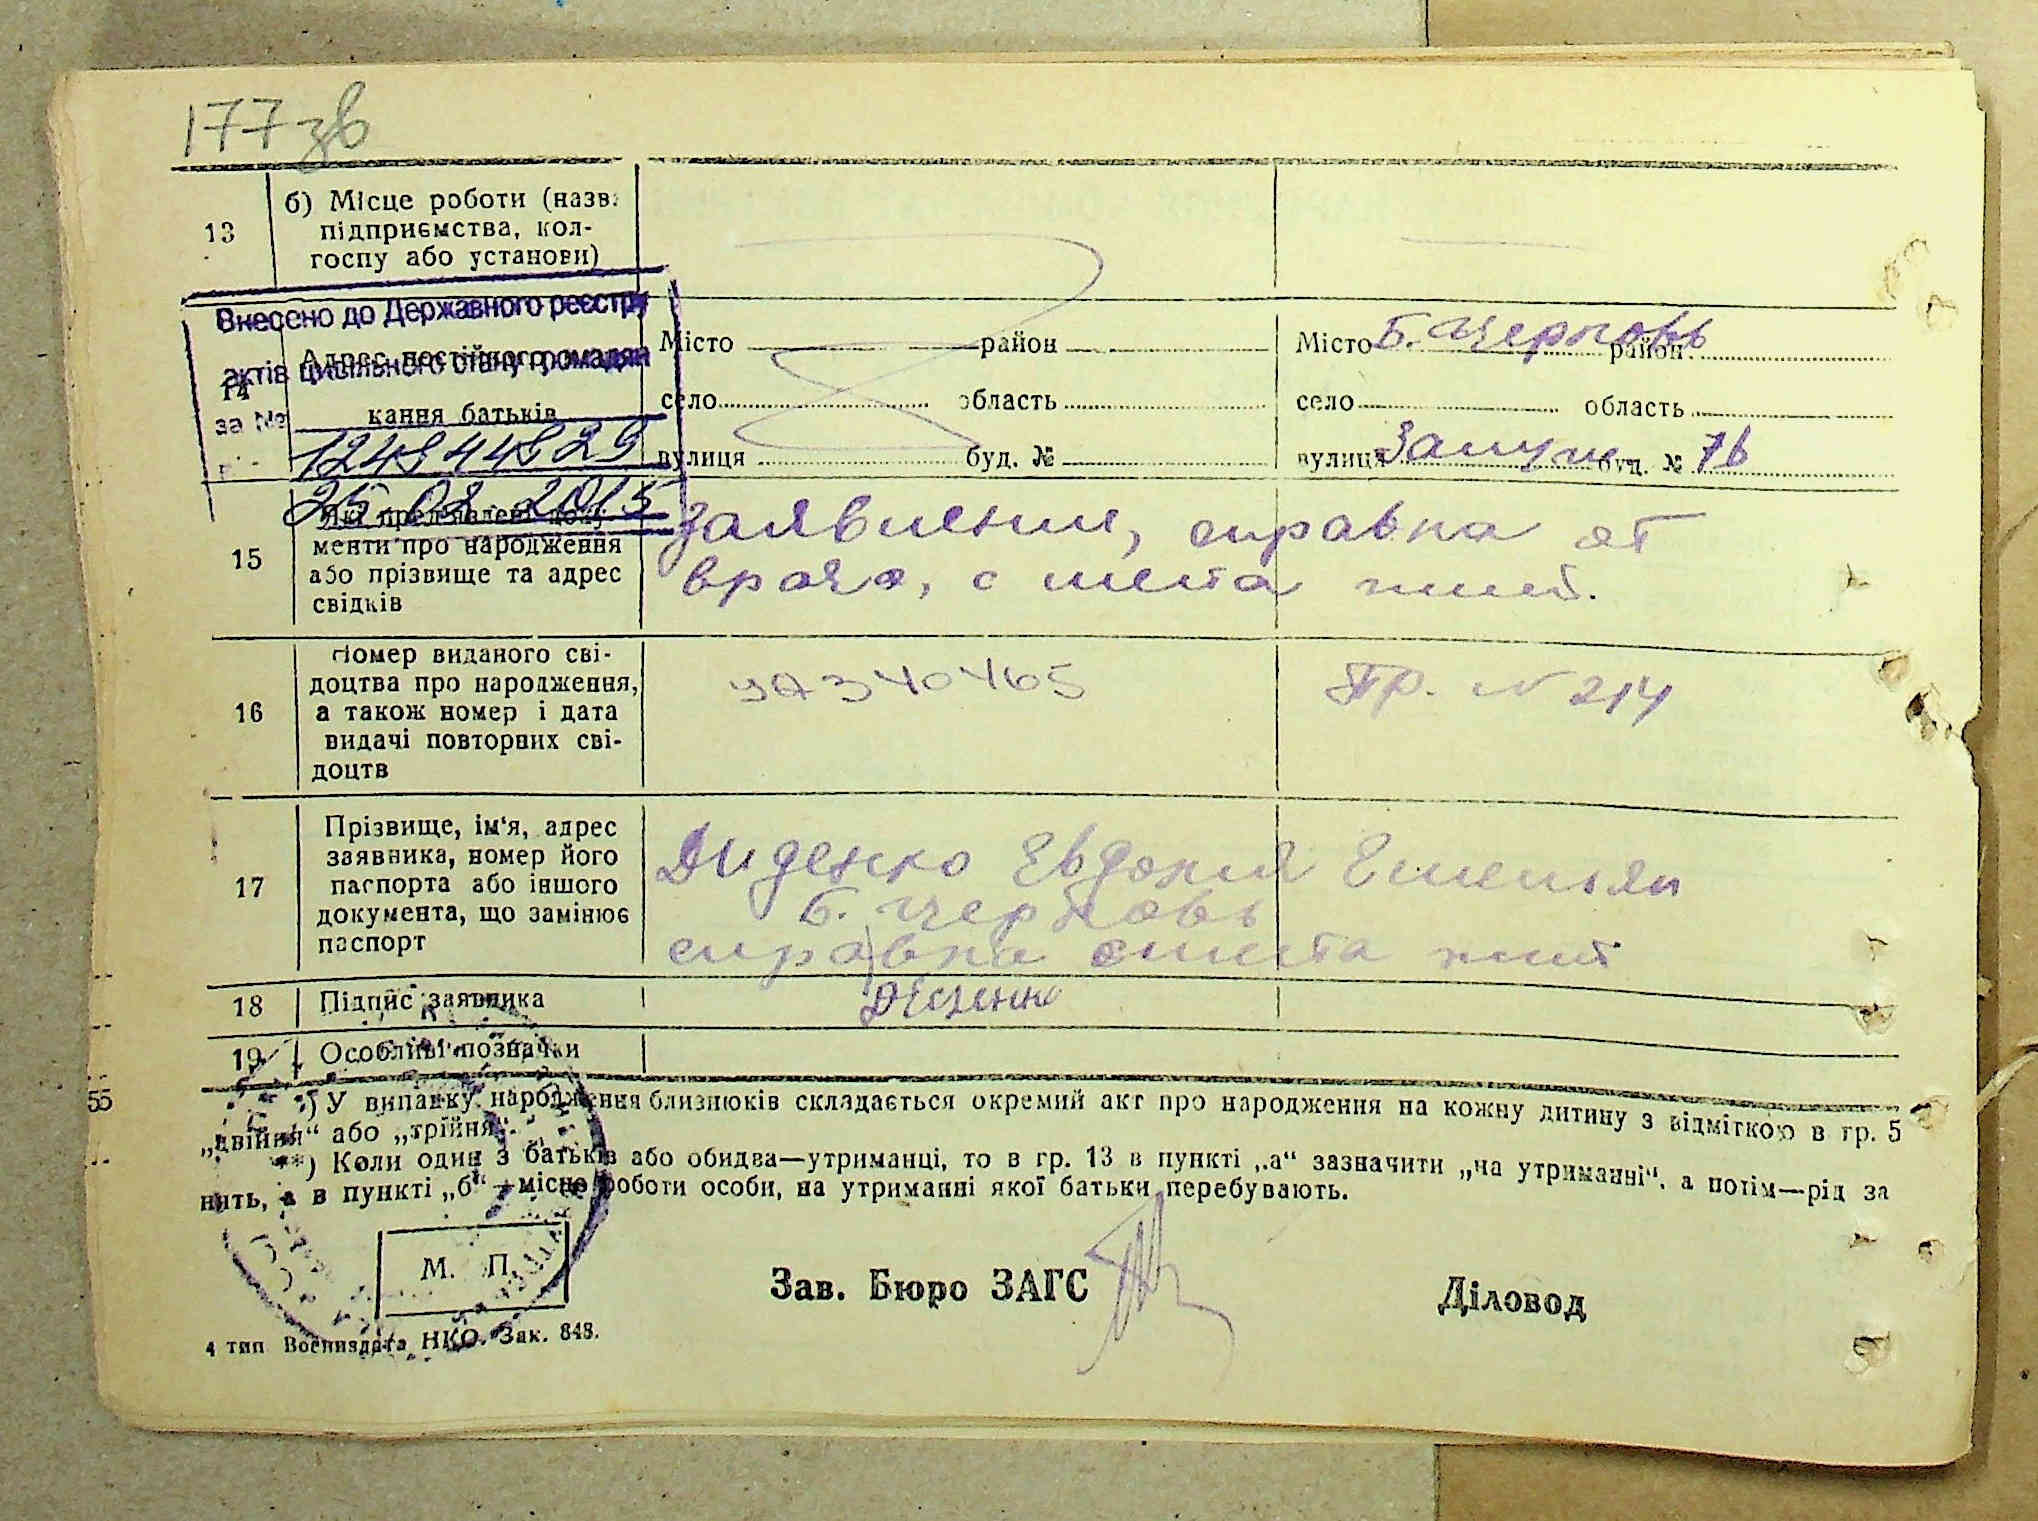 177 зв
13
б) Місце роботи (назв.
підприємства, кол-
госпу або установи)
Внесено до Державного реєстру
актів цивільного стану громадян
за №
1248448 29
25.02.2015
14
Адрес постійного
кання батьків
Місто район
село область
вулиця буд. №
Місто Б. Церковь район
село область
вулиця Замуш буд. № 76
15
Які пред'явлені доку
менти про народження
або прізвище та адрес
свідків
заявление, справка от
врача, с места жит.
16
Номер виданого сві-
доцтва про народження,
а також номер і дата
видачі повторних сві-
доцтв
УА 340465
Пр. N 214
17
Прізвище, ім'я, адрес
заявника, номер його
паспорта або іншого
документа, що замінює
паспорт
Диденко Евдокия Емельян
Б. Церковь
справка с места жит
18
Підпис заявника
19
Особливі позначки
55
*) У випадку народження близнюків складається окремий акт про народження на кожну дитину з відміткою в гр. 5
„двійня“ або „трійня“.
**) Коли один з батьків або обидва—утриманці, то в гр. 13 в пункті „а“ зазначити „на утриманні“, а потім—рід за
нять, а в пункті „б“—місце роботи особи, на утриманні якої батьки перебувають.
М. П.
Зав. Бюро ЗАГС
Діловод
4 тип Воениздата НКО. Зак. 848.